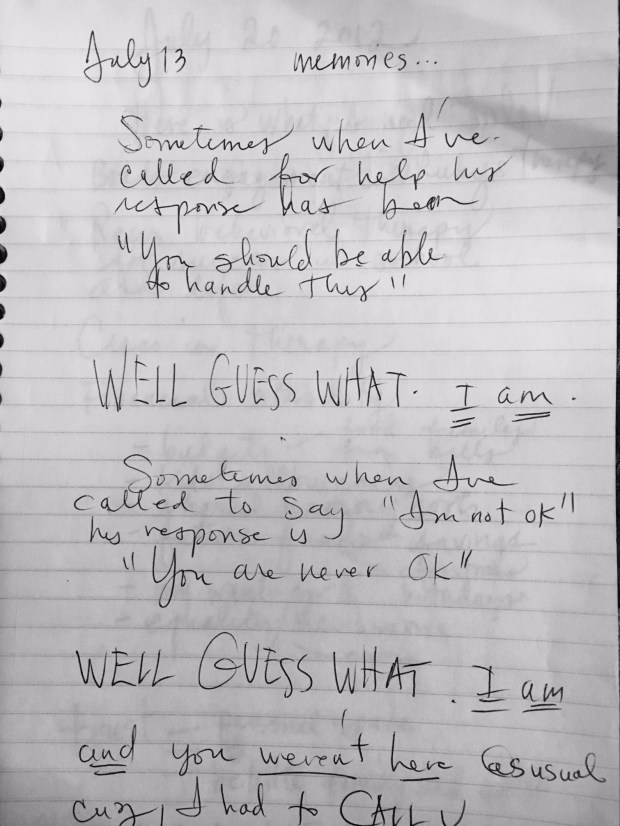 July 13 memories...
Sometimes when I've
called for help his
response has been
"You should be able
to handle this"
WELL GUESS WHAT. I am.
Sometimes when I've
called to say "I'm not ok"
his response is
"You are never OK"
WELL GUESS WHAT. I am
and you weren't here as usual
cuz, I had to CALL U